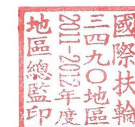 國際扶輪
三四九〇地區
2011-2012年度
地區總監印